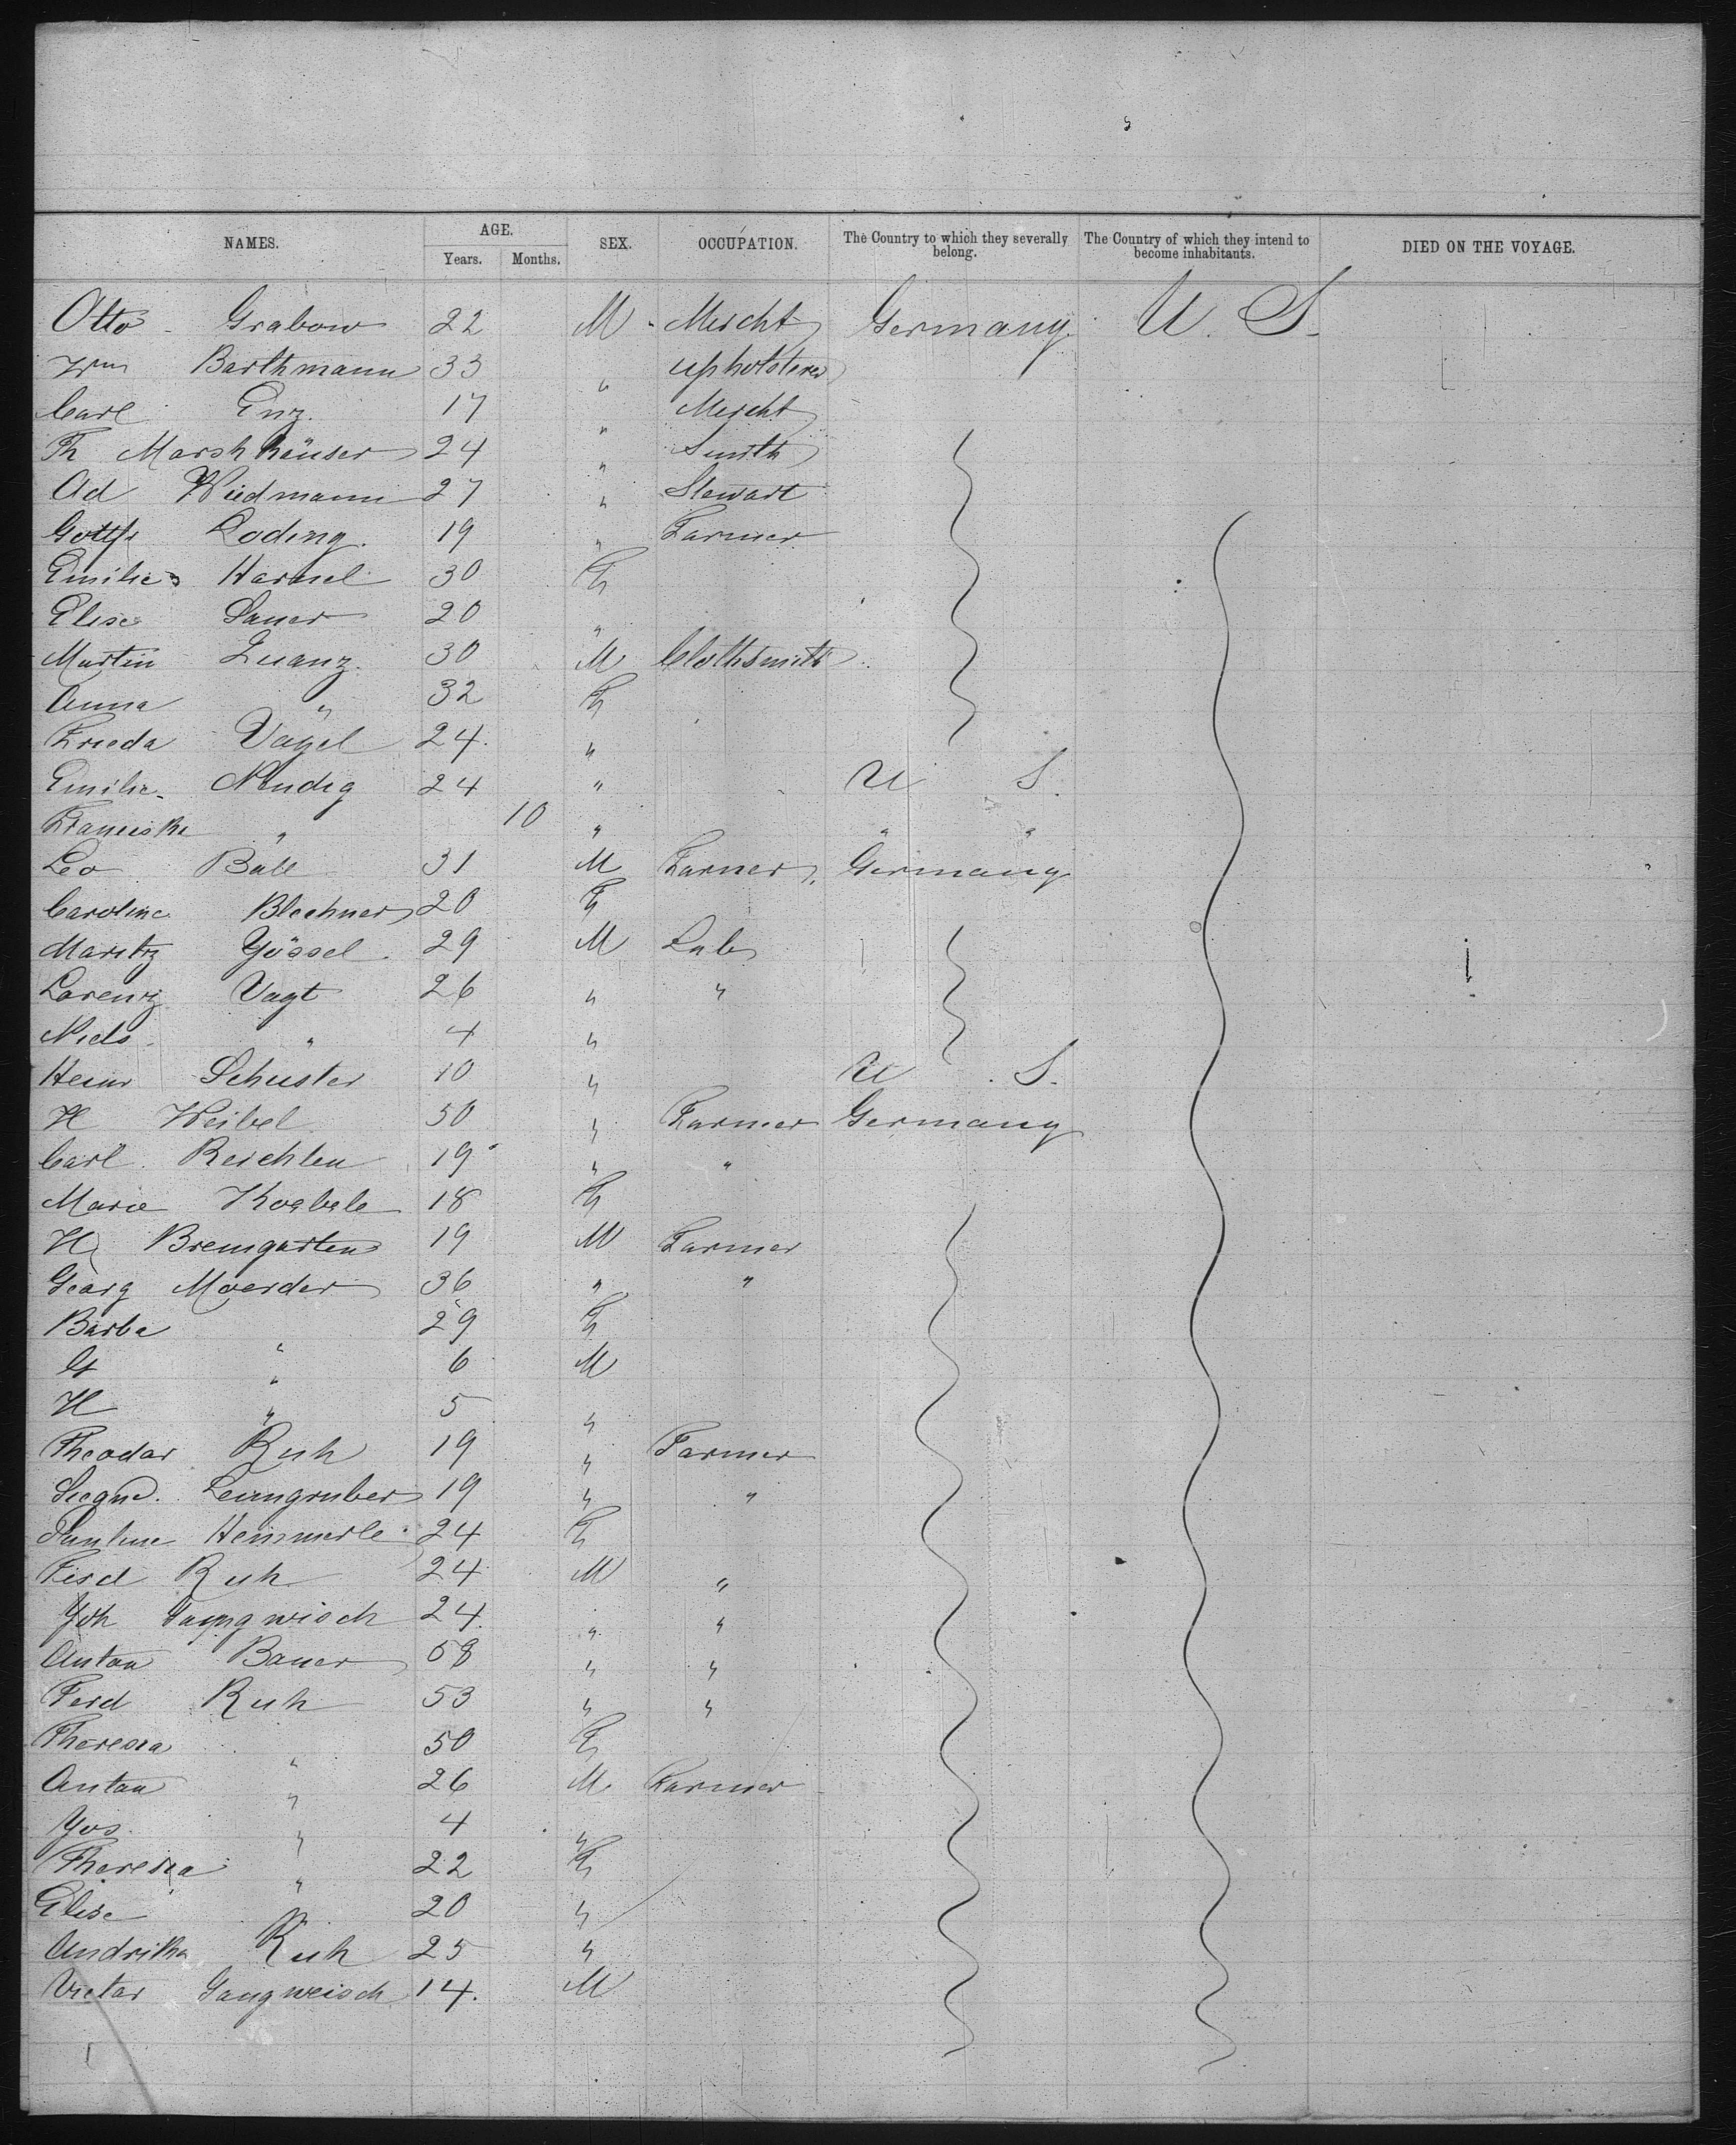 NAMES. AGE. SEX. OCCUPATION. The Country to which they severally belong. The Country of which they intend to become inhabitants. DIED ON THE VOYAGE.
Years. Months.
Otto Grabow 22 M Mercht Germany U. S.
Wm Barthmann 33 " upholsterer
Carl Enz. 17 " Mercht
Th Marshhäuser 24 " Smith
Ad Wiedmann 27 " Stewart
Gottfr Loding. 19 " Farmer
Emilie Harnel 30 F
Elise Sauer 20 "
Martin Luanz. 30 M Clothsmith
Anna " 32 F
Frieda Vogel 24. "
Emilie Nendig 24 " U S.
Franciska " 10 " " "
Leo Ball 31 M Farmer Germany
Caroline Blechner 20 F
Moritz Yössel 29 M Lab
Lorenz Vagt 26 " "
Niels " 4 "
Heinr Schuster 10 " U S.
H Weibel 50 " Farmer Germany
Carl Reichlen 19 " "
Marie Koebele 18 F
H Bremgarten 19 M Farmer
Georg Moerder 36 " "
Barba " 29 F
G " 6 M
H " 5 "
Theodor Ruh 19 " Farmer
Siegm. Leimgruber 19 " "
Pauline Hemmerle 24 F
Ferd Ruh 24 M "
Joh Gangwisch 24. " "
Anton Bauer 58 " "
Ferd Ruh 53 " "
Theresia " 50 F
Anton " 26 M Farmer
Jos. " 4 "
Theresia " 22 F
Elise " 20 "
Andrika Ruh 25 "
Victor Gangweisch 14. M